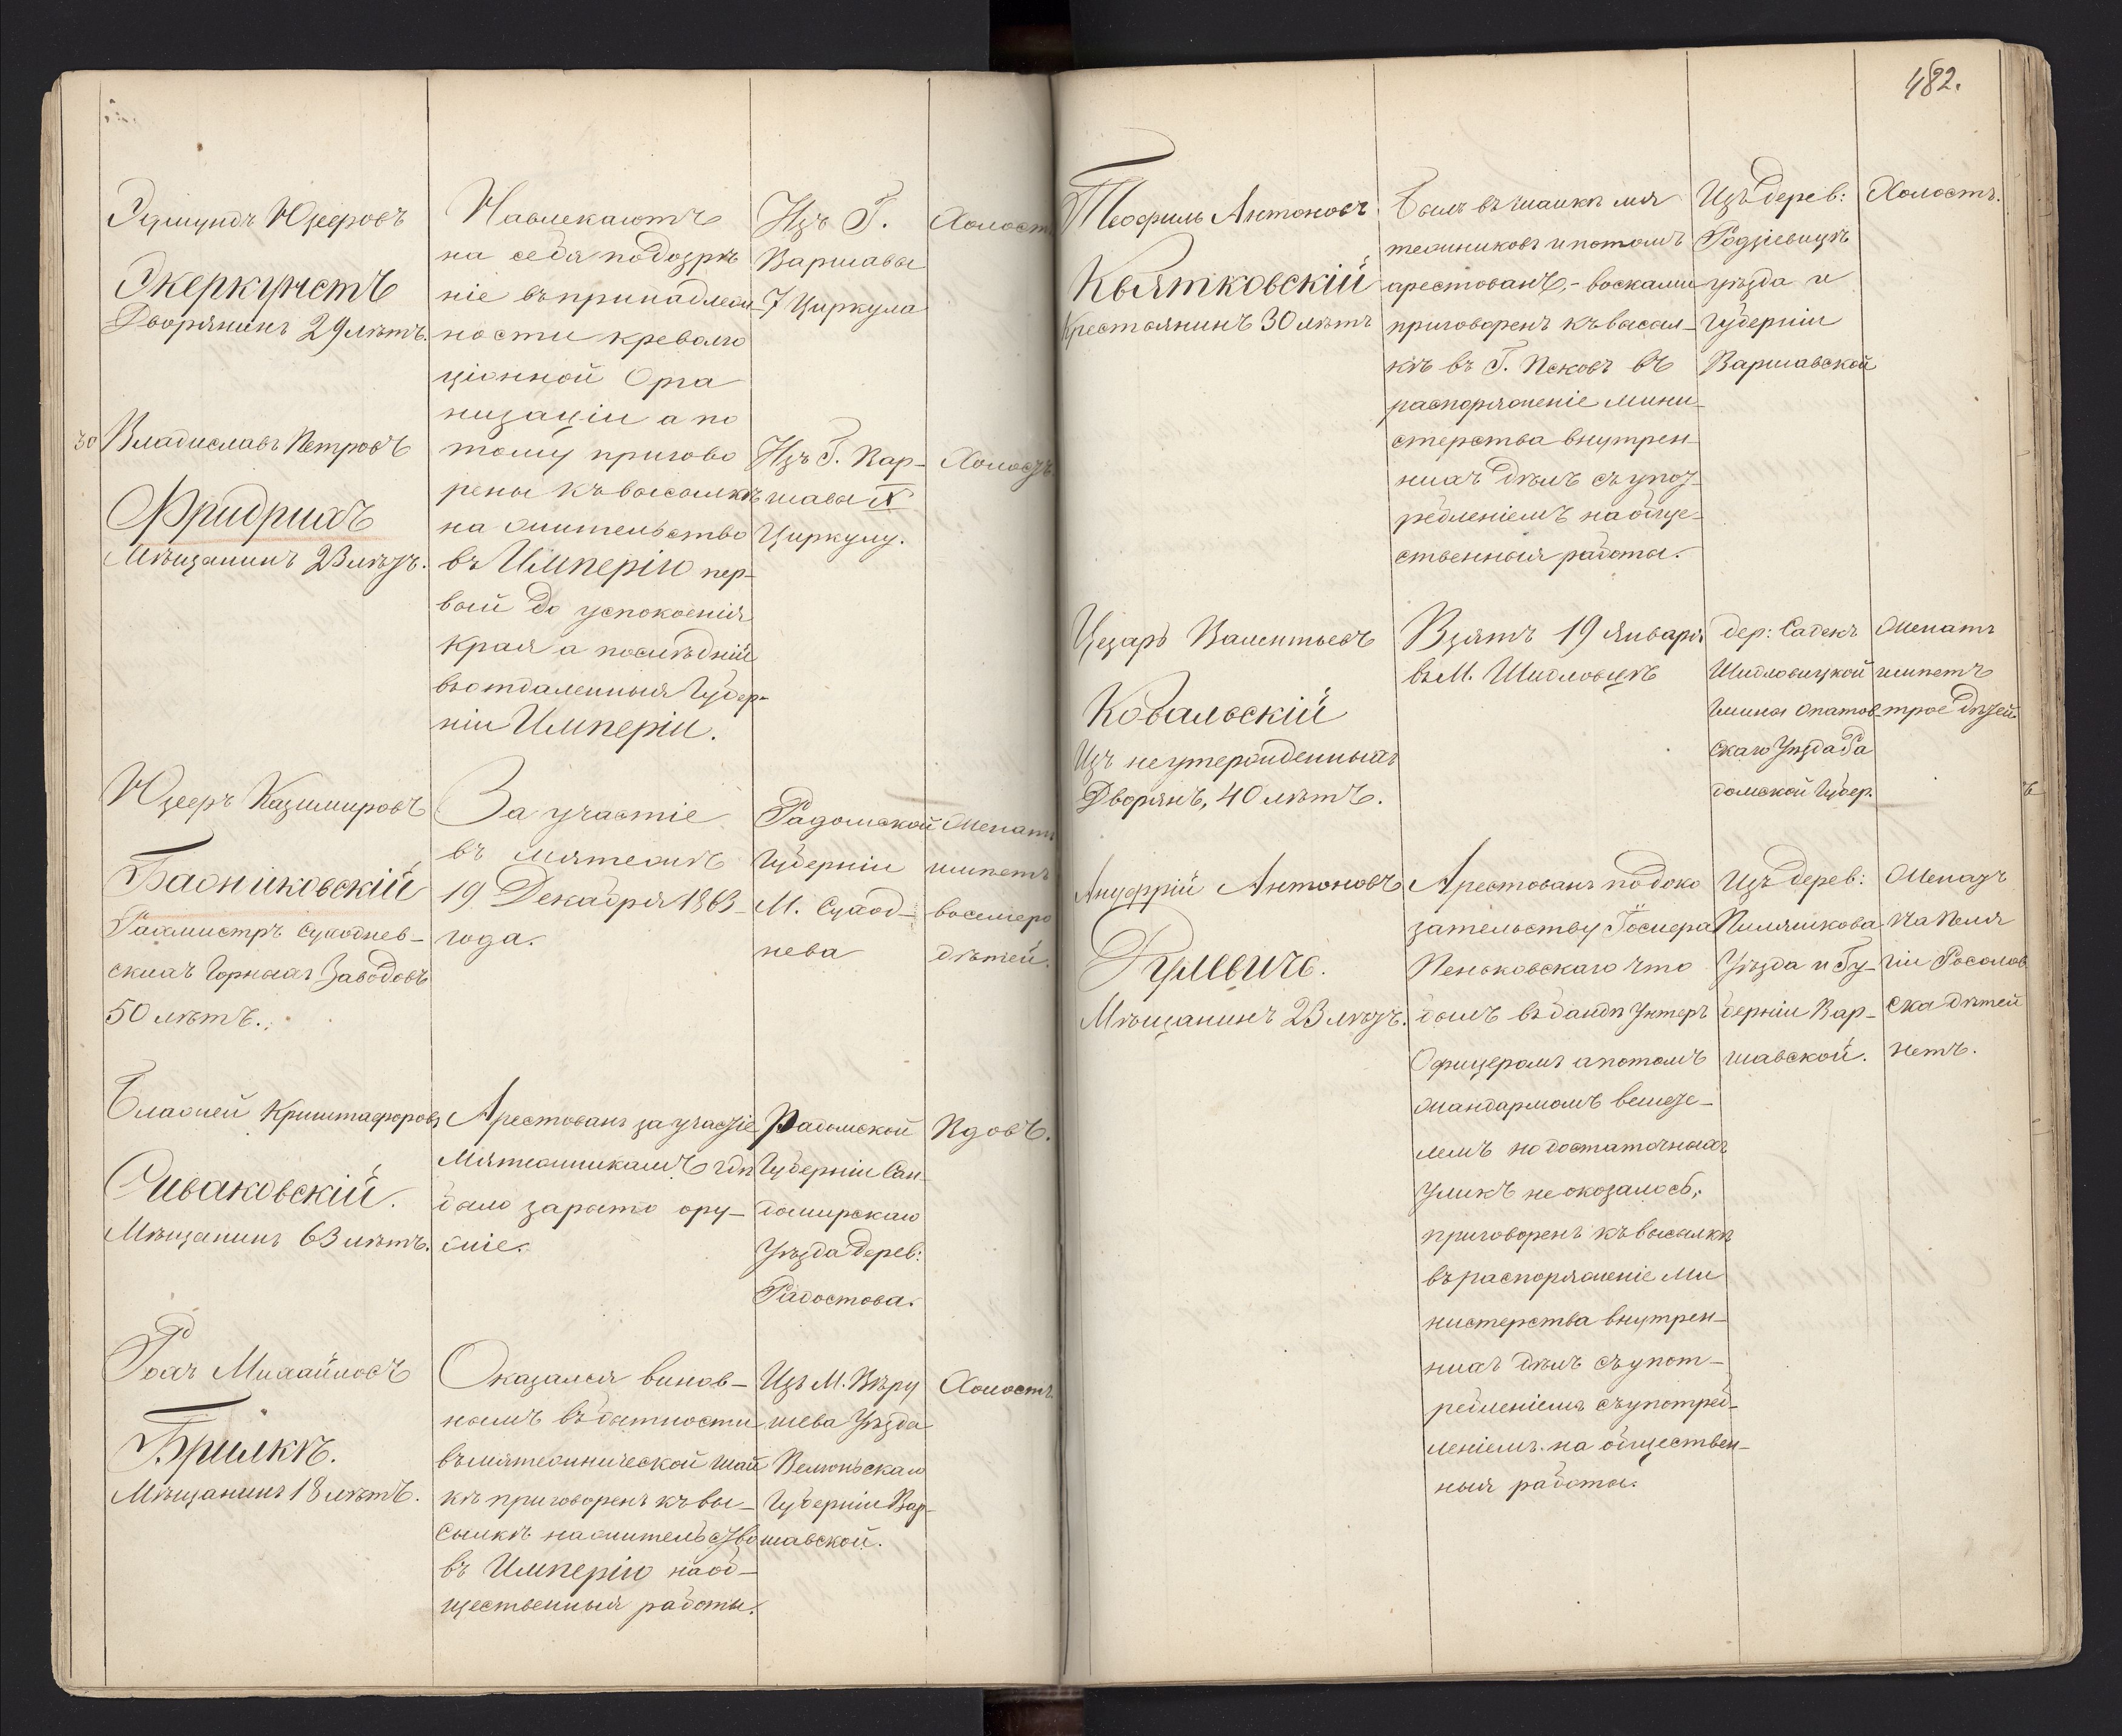 Эдмундъ Юзефовъ
Экеркунстъ
Дворянинъ 29 лѣтъ.
Навлекаютъ
на себя подозрѣ
ніе въ принадлеж-
ности к револю
ціонной Орга
низаціи а по
тому пригово
рены къ высылкѣ
на жительство
въ Имперію пер-
вый до успокоенія
края а послѣдній
въ отдаленныя Губер-
ніи Имперіи.
Изъ Г.
Варшавы
7 Циркула
Холостъ
30 Владиславъ Петровъ
Фридрихъ
Мѣщанинъ 23 лѣтъ.
Изъ Г. Вар-
шавы IX
Циркулу.
Холостъ
Юзефъ Казимировъ
Бжониковскій
Сухеднев-
скихъ Горныхъ Заводовъ
50 лѣтъ.
За участіе
въ мятежѣ
19 Декабря 1863-
года.
Радомской
Губерніи
М. Сухед-
нева
Женатъ
имѣетъ
восмеро
дѣтей.
Блажей Криштафоровъ
Сиваковскій.
Мѣщанинъ 63 лѣтъ.
Арестованъ за участіе
Мятежникамъ гдѣ
было зарыто ору-
жіе.
Радомской
Губерніи Сан-
домирскаго
Уѣзда дерев:
Радостова.
Вдовъ.
Рохъ Михайловъ
Брилкъ.
Мѣщанинъ 18 лѣтъ.
Оказался винов-
нымъ въ бытности
въ мятежнической шай
кѣ приговоренъ къ вы-
сылкѣ на жительство
въ Имперію на об-
щественныя работы.
Изъ М. Вѣру
шева Уѣзда
Велюньскаго
Губерніи Вар-
шавской.
Холостъ.
482.
Теофиль Антоновъ
Квятковскій
Крестьянинъ 30 лѣтъ
Былъ въ шайкѣ мя
тежниковъ и потомъ
арестованъ,-
приговоренъ къ высыл-
кѣ въ Г. Псковъ въ
распоряженіе мини-
стерства внутрен-
нихъ дѣлъ съ упот-
ребленіемъ на обще-
ственныя работы.
Изъ дерев:
Родзіевицъ
уѣзда и
Губерніи
Варшавской
Холостъ.
Цезарь Валентьевъ
Ковальскій
Изъ неутержденныхъ
Дворянъ, 40 лѣтъ.
Взятъ 19 Января
въ М. Шидловцѣ
дер: Садекъ
Шидловицкой
Гмины Опатов-
скаго Уѣзда Ра
домской Губер.
Женатъ
имѣетъ
трое дѣтей.
Ануфрій Антоновъ
Рулевичъ.
Мѣщанинъ 23 лѣтъ.
Арестованъ по дока
зательству
Пеньковскаго что
былъ въ бандѣ Унтеръ
Офицеромъ а потомъ
жандармомъ вешате-
лемъ но достаточныхъ
уликъ не оказалось,
приговоренъ къ высылкѣ
въ распоряженіе Ми
нистерства внутрен-
нихъ дѣлъ съ упот-
ребленіемъ съ употреб-
леніемъ на обществен-
ныя работы.
Изъ дерев:
Уѣзда и Гу-
берніи Вар-
шавской.
Женатъ
на Пеля
гіи Росолов
ска дѣтей
нетъ.